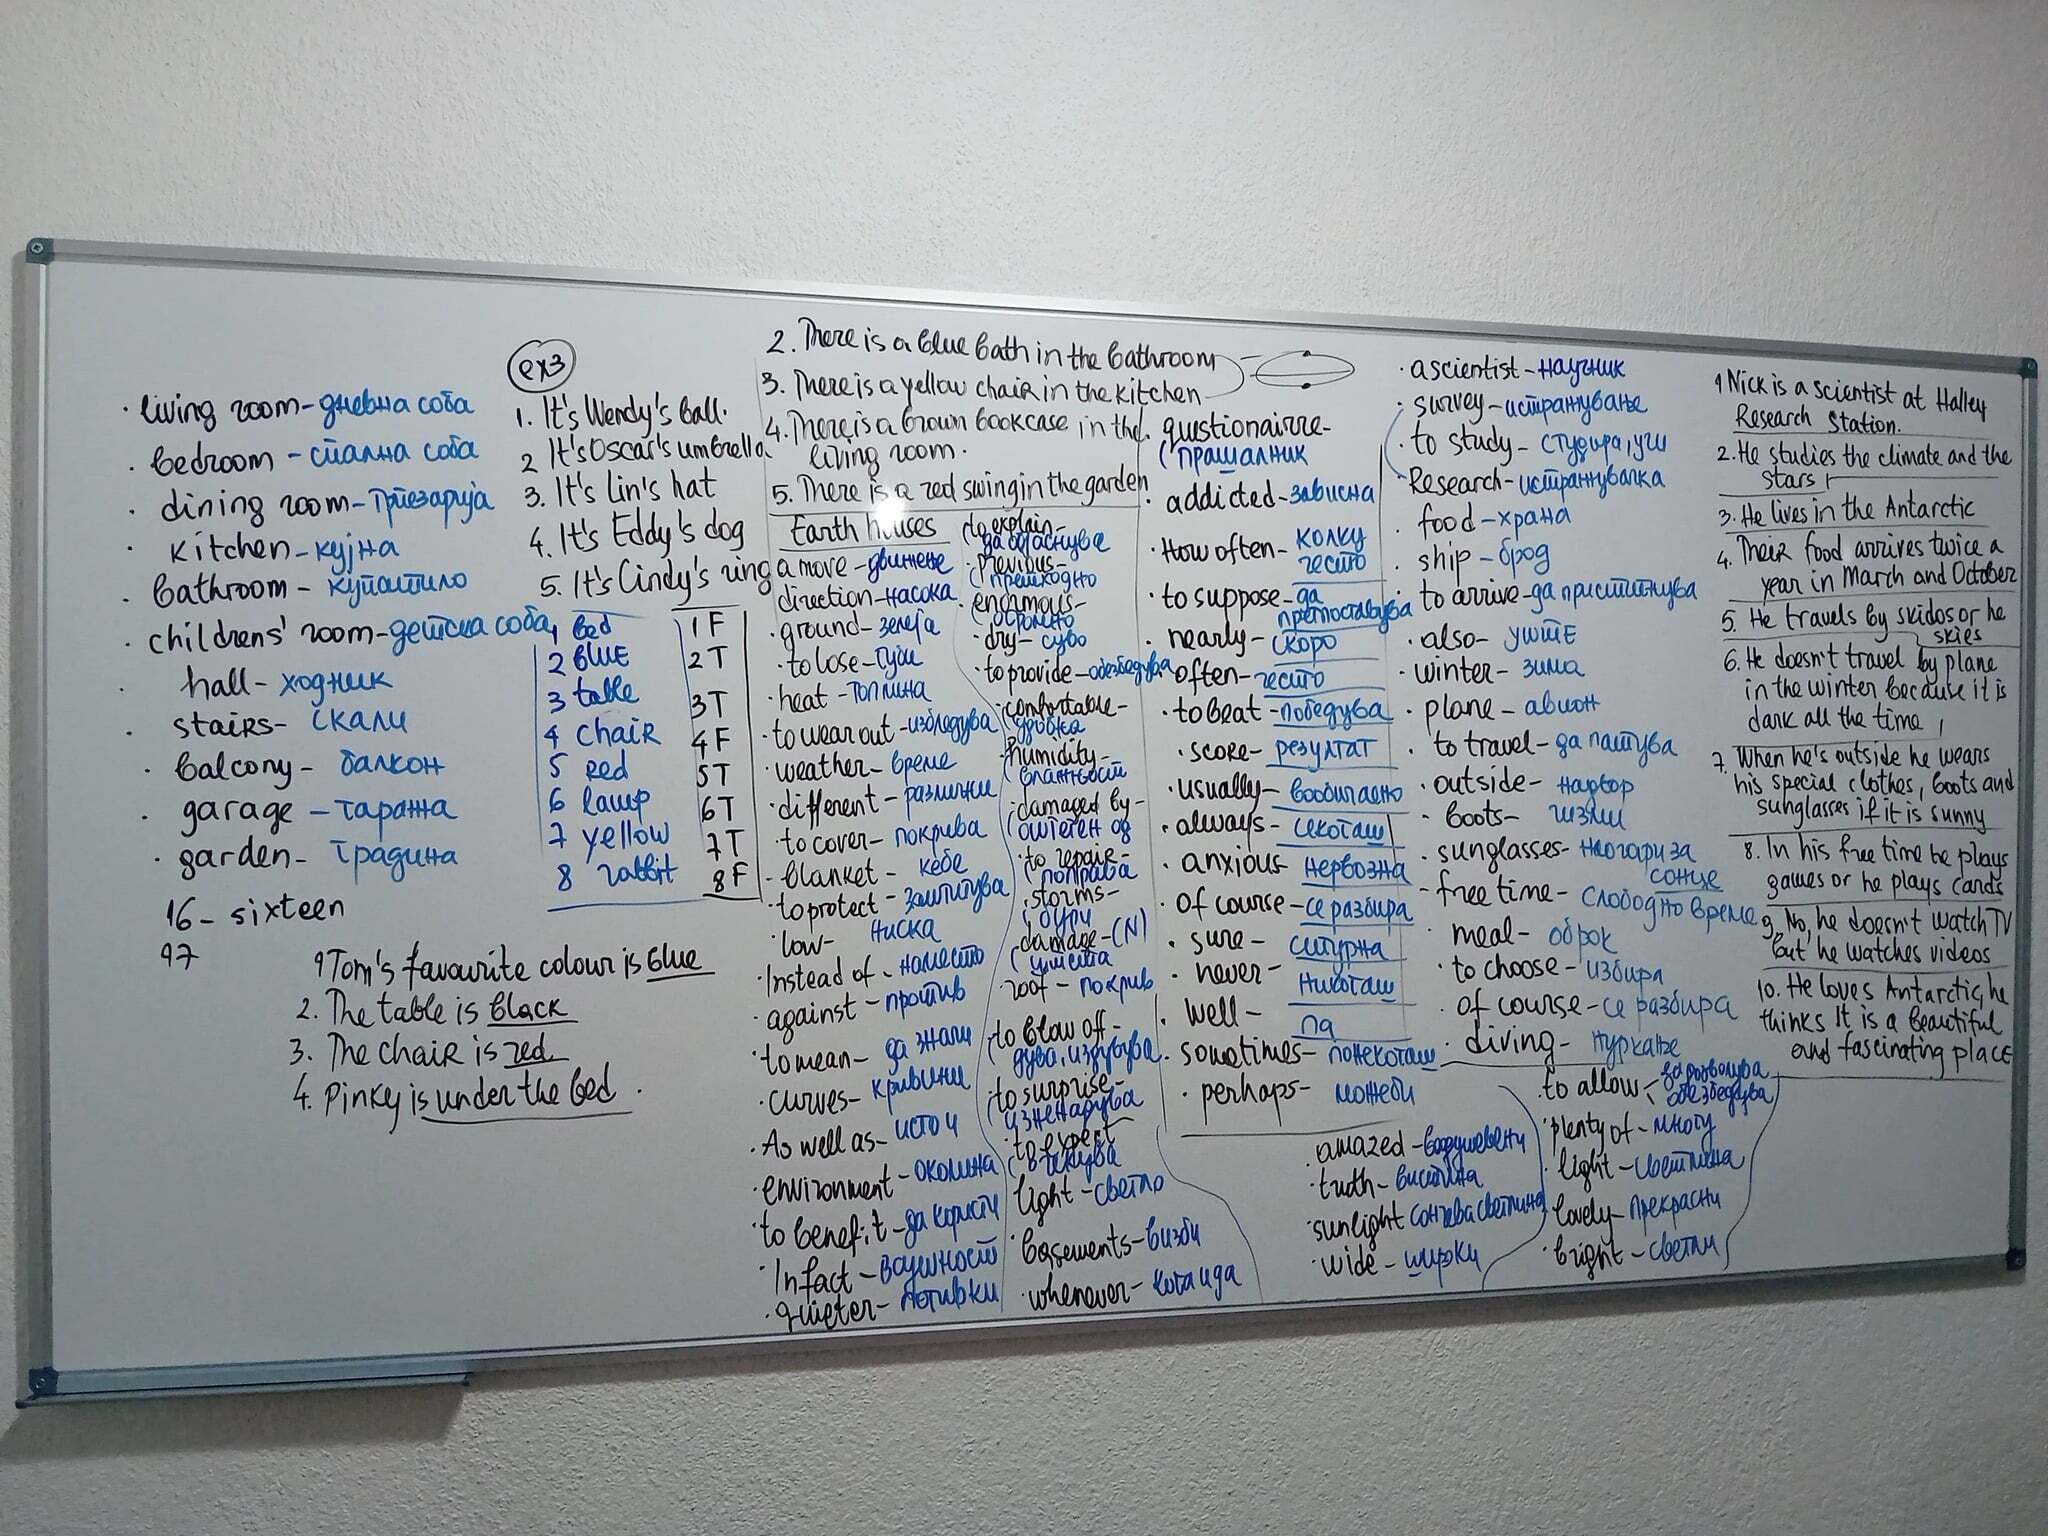 · living room - дневна соба
· bedroom - спална соба
· dining room - трпезарија
· kitchen - кујна
· bathroom - купатило
· childrens' room - детска соба
· hall - ходник
· stairs - скали
· balcony - балкон
· garage - гаража
· garden - градина
16 - sixteen
97
ex3
1. It's Wendy's ball.
2 It's Oscar's umbrella
3. It's Lin's hat
4. It's Eddy's dog
5. It's Cindy's ring
1 bed
2 BLUE
3 table
4 chair
5 red
6 lamp
7 yellow
8 rabbit
1 F
2 T
3 T
4 F
5 T
6 T
7 T
8 F
1 Tom's favourite colour is blue
2. The table is black
3. The chair is red
4. Pinky is under the bed.
2. There is a blue bath in the bathroom
3. There is a yellow chair in the kitchen
4. There is a brown bookcase in the
living room.
5. There is a red swing in the garden
Earth houses
a move - движење
direction - насока
· ground - земја
· to lose - губи
· heat - топлина
· to wear out - избледува
· weather - време
· different - различни
· to cover - покрива
· blanket - кебе
· to protect - заштитува
· low - ниска
· Instead of - наместо
· against - против
· to mean - да значи
· curves - кривини
· As well as - исто и
· environment - околина
· to benefit - да користи
· In fact - всушност
· quieter - потивки
· to explain -
да објаснува
· previous -
претходно
· enormous -
огромно
· dry - суво
· to provide - обезбедува
· comfortable -
удобна
· humidity -
влажност
· damaged by -
оштетен од
· to repair -
поправа
· storms -
бури
damage - (N)
штета
· roof - покрив
· to blow off -
дува, издувува
· to surprise -
изненадува
· to expect
очекува
light - светло
· basements - визби
· whenever - кога и да
· questionairre -
прашалник
· addicted - зависна
· How often - колку
често
· to suppose - да
претпоставува
· nearly - скоро
· often - често
· to beat - победува
· score - резултат
· usually - вообичаено
· always - секогаш
· anxious - нервозна
· of course - се разбира
· sure - сигурна
· never - никогаш
· well - па
· sometimes - понекогаш
· perhaps - можеби
· a scientist - научник
· survey - истражување
· to study - студира, учи
· Research - истражувачка
· food - храна
· ship - брод
· to arrive - да пристигнува
· also - уште
· winter - зима
· plane - авион
· to travel - да патува
· outside - надвор
· boots - чизми
· sunglasses - наочари за
сонце
· free time - слободно време
· meal - оброк
· to choose - избира
· of course - се разбира
· diving - нуркање
· amazed - воодушевени
· truth - вистина
· sunlight сончева светлина
· wide - широки
· to allow - да дозволува
обезбедува
· plenty of - многу
· light - светлина
· lovely - прекрасни
· bright - светли
1 Nick is a scientist at Halley
Research Station.
2. He studies the climate and the
stars
3. He lives in the Antarctic
4. Their food arrives twice a
year in March and October
5. He travels by skidos or he
skies
6. He doesn't travel by plane
in the winter because it is
dark all the time
7. When he's outside he wears
his special clothes, boots and
sunglasses if it is sunny
8. In his free time he plays
games or he plays cards
9. No, he doesn't watch TV
but he watches videos
10. He loves Antarctic, he
thinks It is a beautiful
and fascinating place